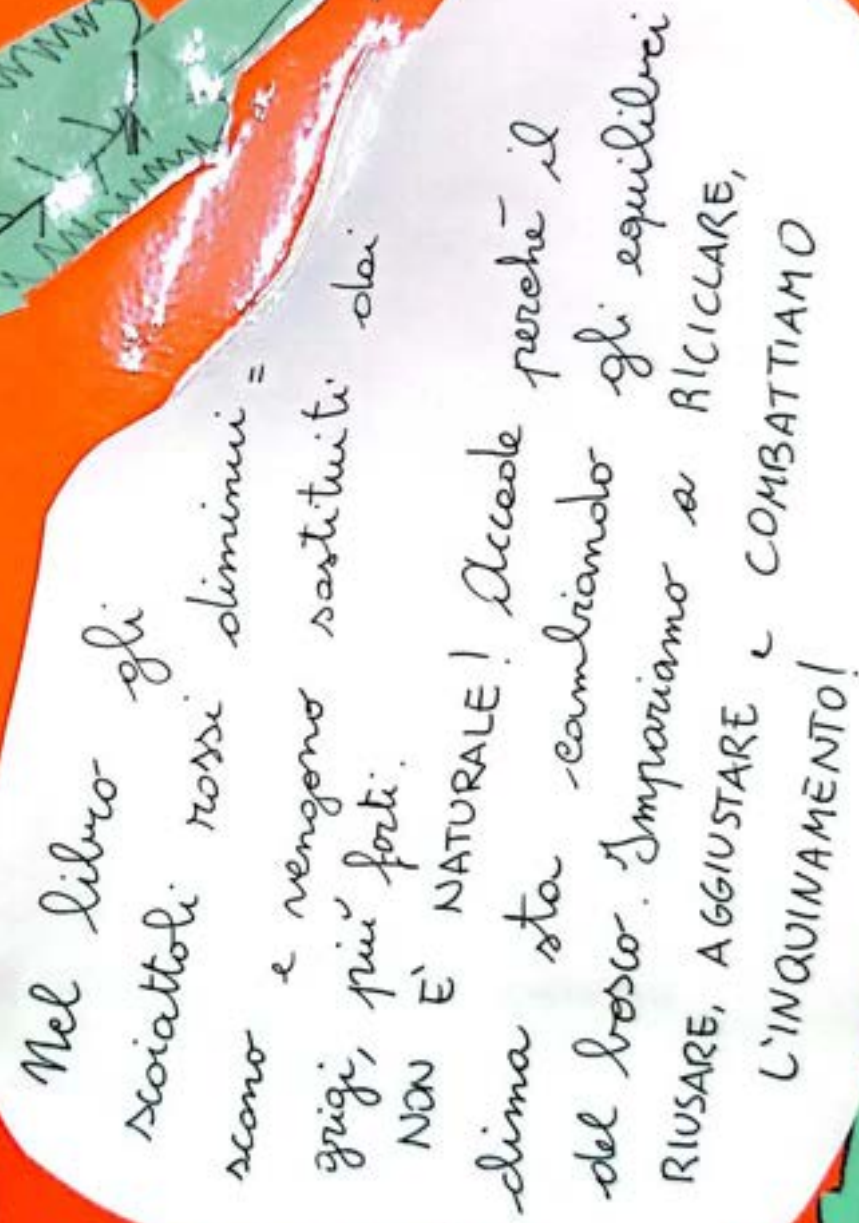 Nel libro gli
scoiattoli rossi diminui=
scono e vengono sostituiti dai
grigi, più forti.
NON È NATURALE! Accade perchè il
clima sta cambiando gli equilibri
del bosco. Impariamo a RICICLARE,
RIUSARE, AGGIUSTARE e COMBATTIAMO
L'INQUINAMENTO!